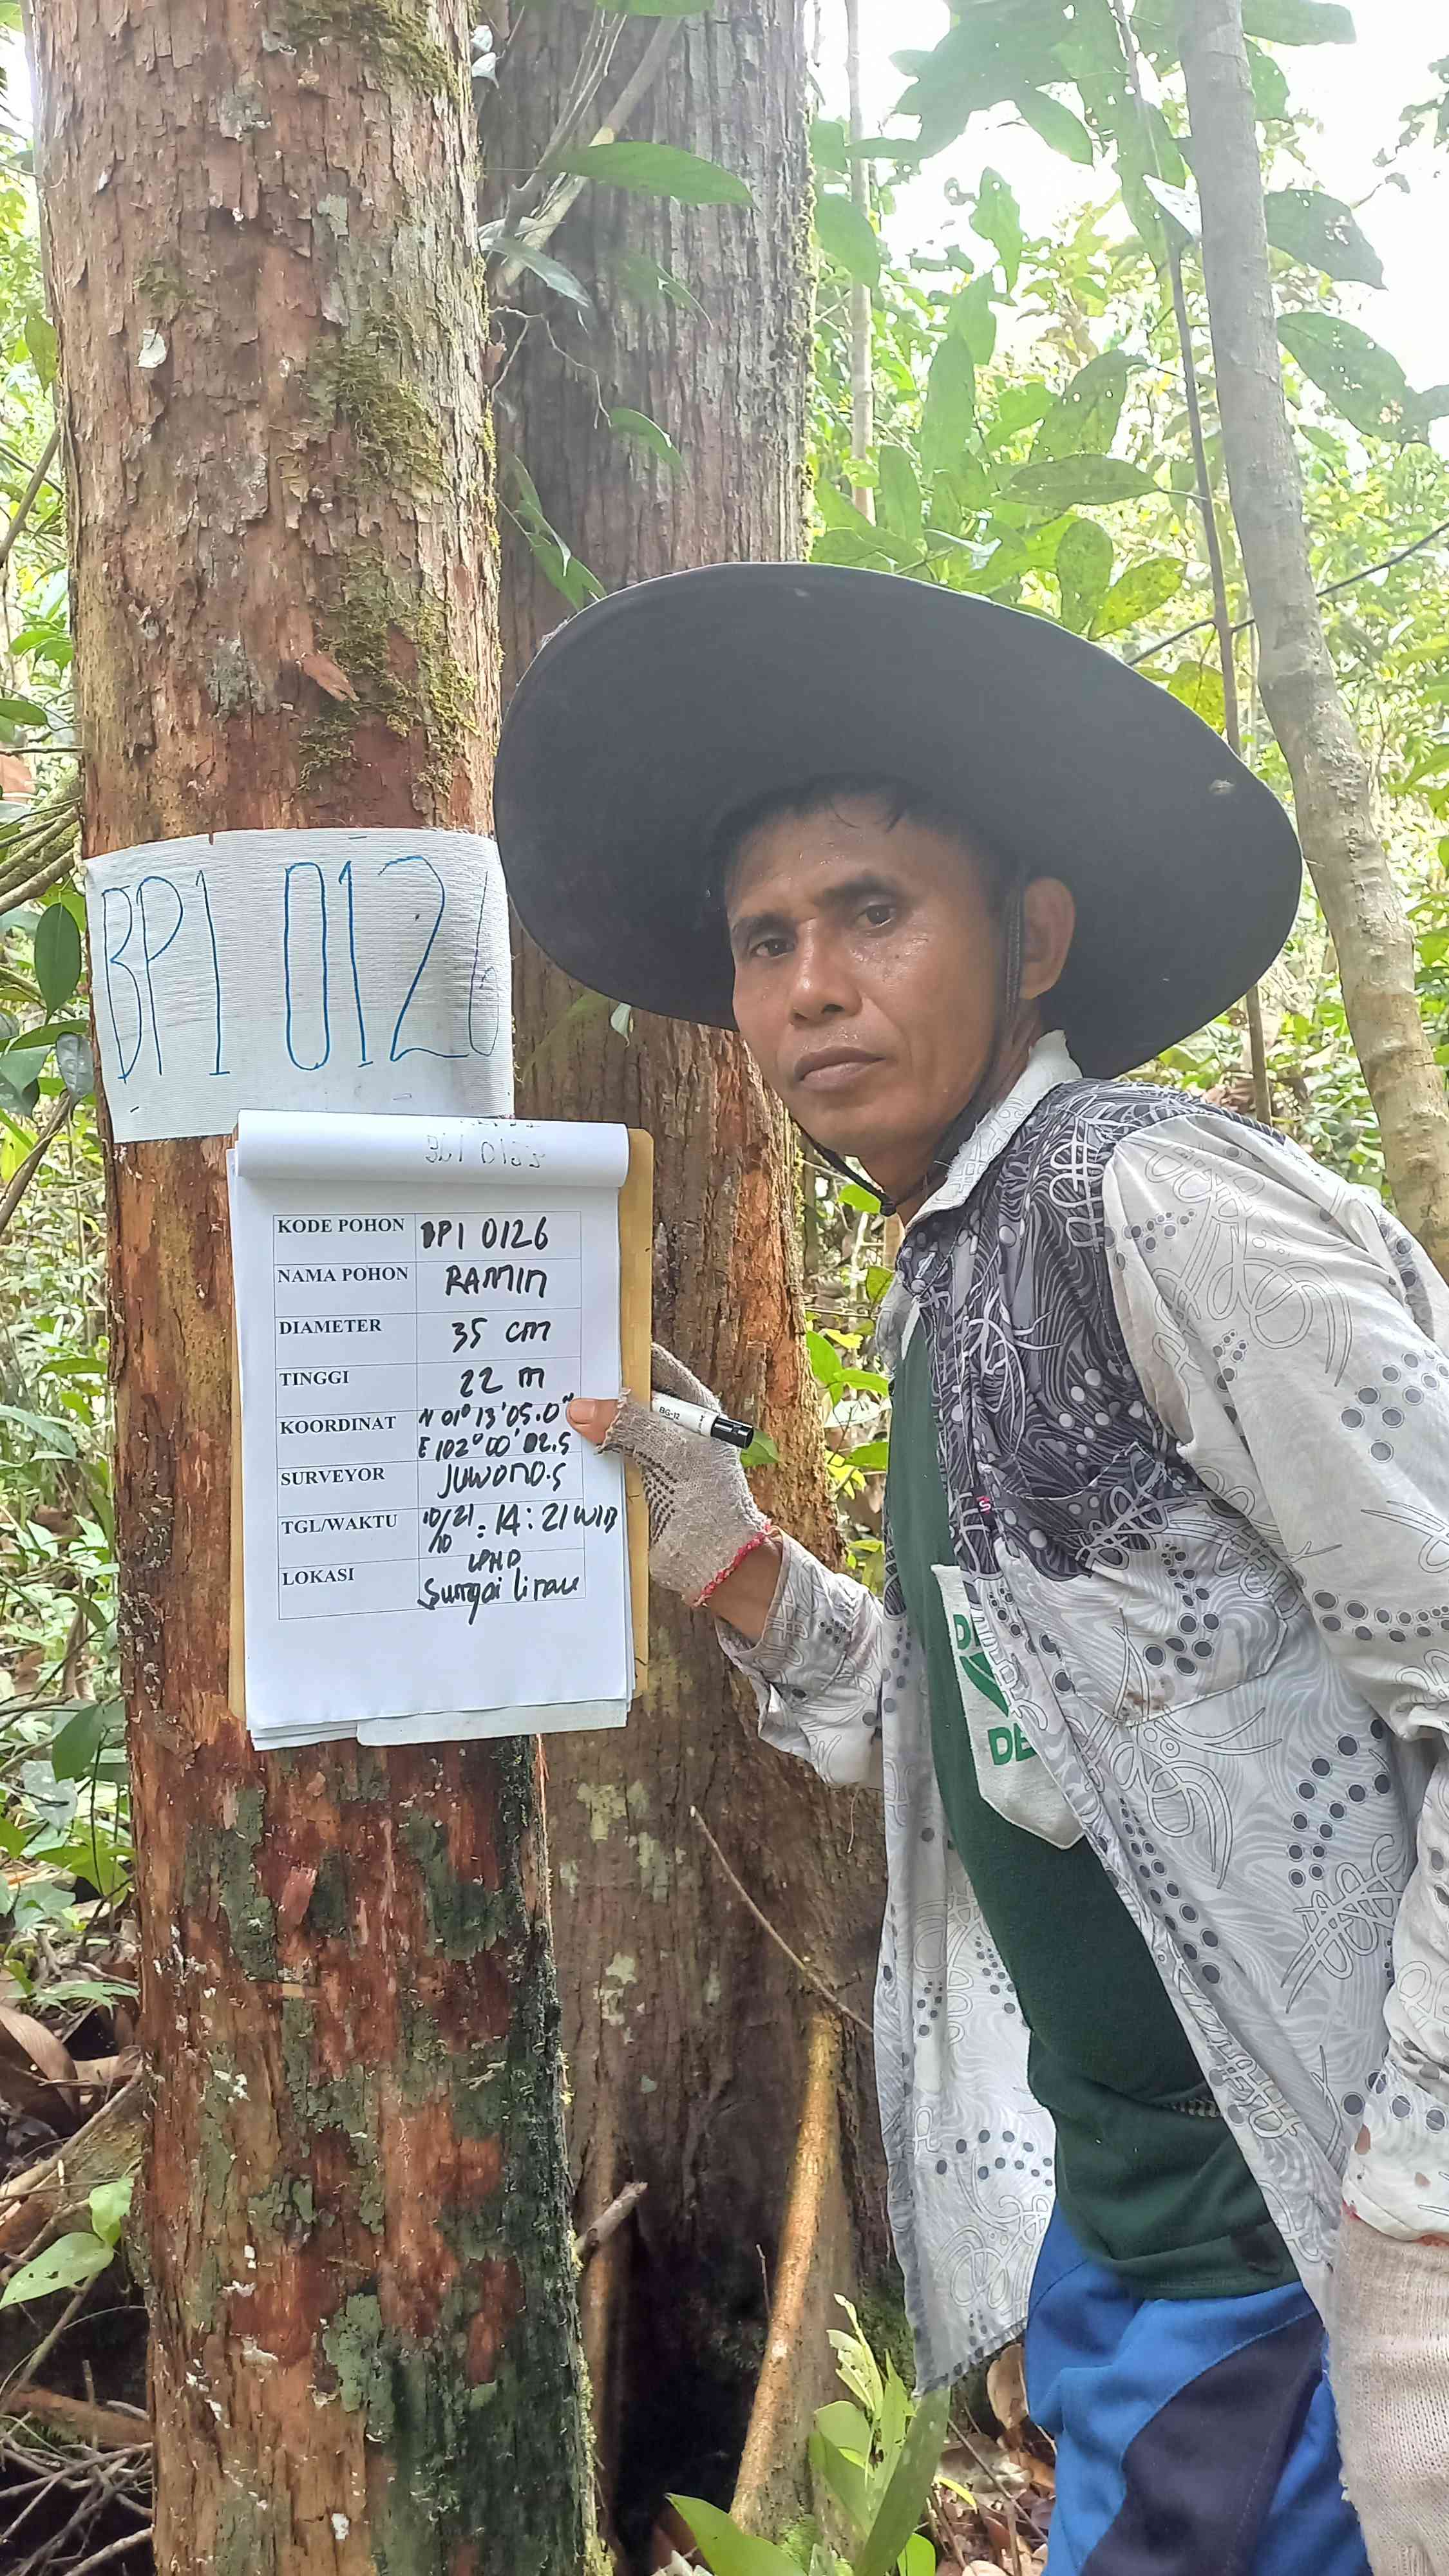 BP1 0126
KODE POHON BP1 0126
NAMA POHON RAMIN
DIAMETER 35 cm
TINGGI 22 m
KOORDINAT N 01° 13' 05.0"
E 102° 00' 02.5
SURVEYOR JUWONO.S
TGL/WAKTU 10/21 : 14:21 WIB
/10
LOKASI LPHD
Sungai linau
BG-12
DE